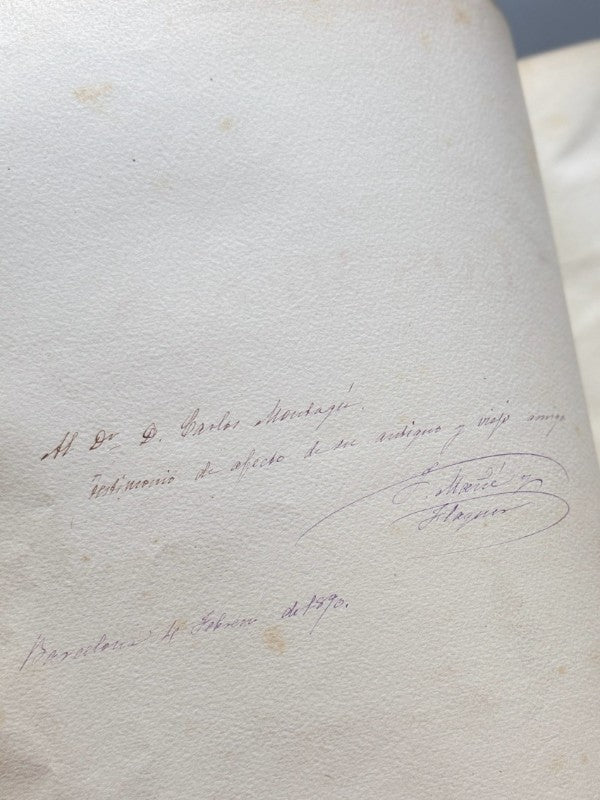 Al Dr. D. Carlos Montagú.
testimonio de afecto de su antiguo y viejo amigo
F. Mañé y
Flaquer
Barcelona Febrero de 1890.